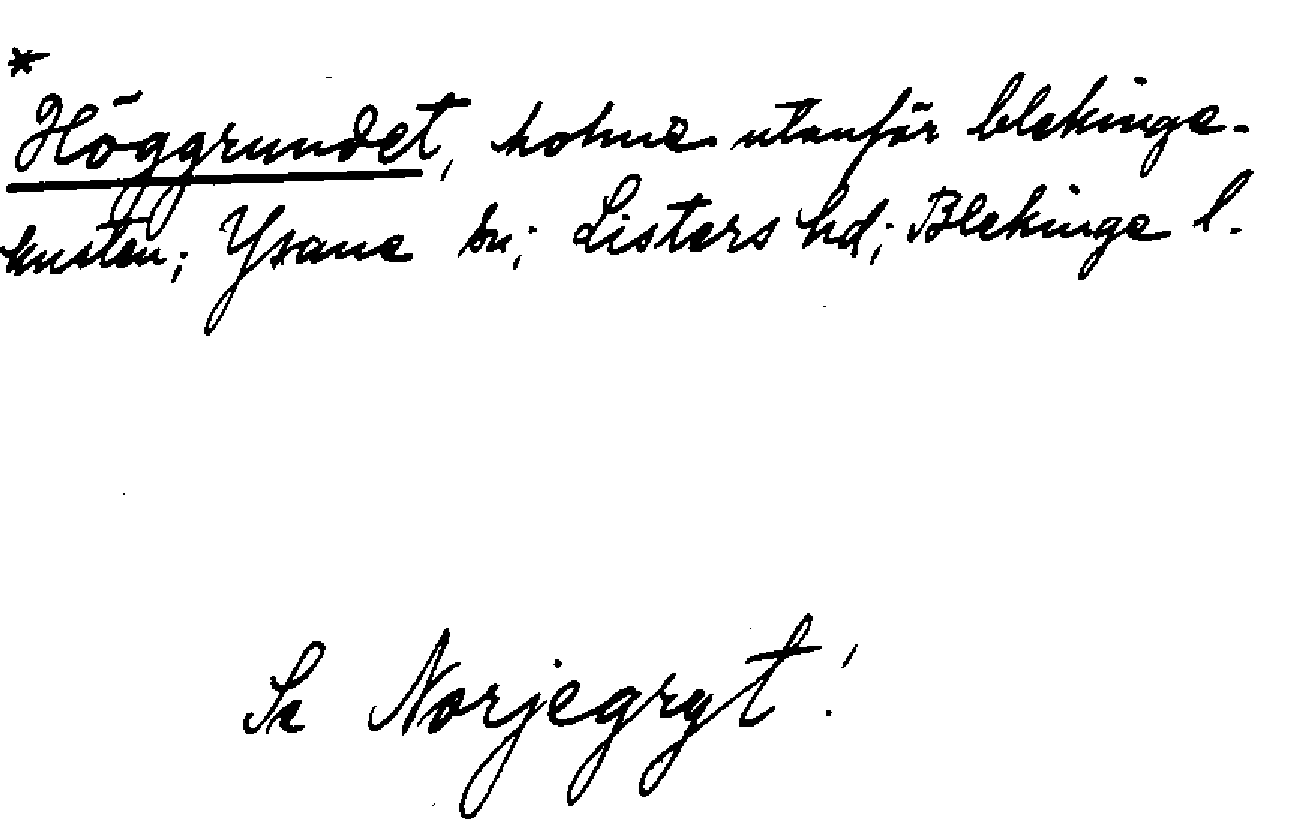 *
Höggrundet, holme utanför blekinge-
kusten; Ysane sn; Listers hd; Blekinge l.
Se Norjegryt!